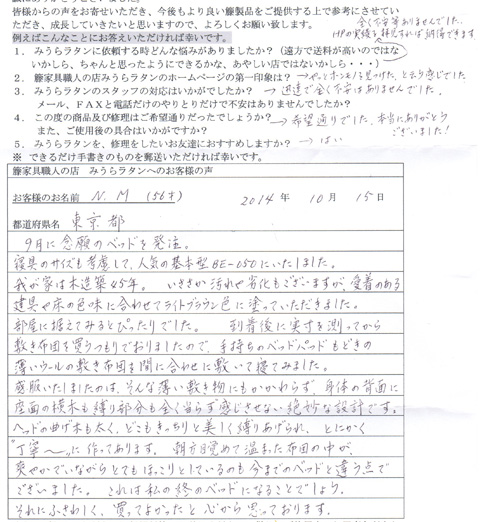 皆様からの声をお寄せいただき、今後もより良い籐製品をご提供する上で参考にさせてい
ただき、成長していきたいと思いますので、よろしくお願い致します。
例えばこんなことにお答えいただければ幸いです。
全く不安等ありませんでした。
HPの実績を拝見すれば納得できます
1．みうらラタンに依頼する時どんな悩みがありましたか？（遠方で送料が高いのではな
いかしら、ちゃんと思ったようにできるかな、あやしい店ではないかしら・・・）
2．籐家具職人の店みうらラタンのホームページの第一印象は？→やっとホンモノ見つけた、と云う感じでした
3．みうらラタンのスタッフの対応はいかがでしたか？→迅速で全く不安はありませんでした。
メール、FAXと電話だけのやりとりだけで不安はありませんでしたか？
4．この度の商品及び修理はご希望通りだったでしょうか？→希望通りでした、本当にありがとう
ございました！
また、ご使用後の具合はいかがですか？
5．みうらラタンを、修理をしたいお友達におすすめしますか？→はい
※ できるだけ手書きのものを郵送いただければ幸いです。
籐家具職人の店 みうらラタンへのお客様の声
お客様のお名前 N.M (56才) 2014年 10月 15日
都道府県名 東京都
9月に念願のベッドを発注。
寝具のサイズも考慮して、人気の基本型BE-050にいたしました。
我が家は木造築45年。いささか汚れや劣化もございますが、愛着のある
建具や床の色味に合わせてライトブラウン色に塗っていただきました。
部屋に据えてみるとぴったりでした。 到着後に実寸を測ってから
敷き布団を買うつもりでおりましたので、手持ちのベッドパッドもどきの
薄いウールの敷き布団を間に合わせに敷いて寝てみました。
感服いたしましたのは、そんな薄い敷き物にもかかわらず、身体の背面に
座面の横木も縛り部分も全く当らず感じさせない絶妙な設計です。
ヘッドの曲げ木も太く、どこもきっちりと美しく縛りあげられ、とにかく
"丁寧〜"に作ってあります。 朝方目覚めて温まった布団の中が、
爽やかでいながらとてもほっこりとしているのも今までのベッドと違う点で
ございました。 これは私の終のベッドになることでしょう。
それにふさわしく、買ってよかったと心から思っております。